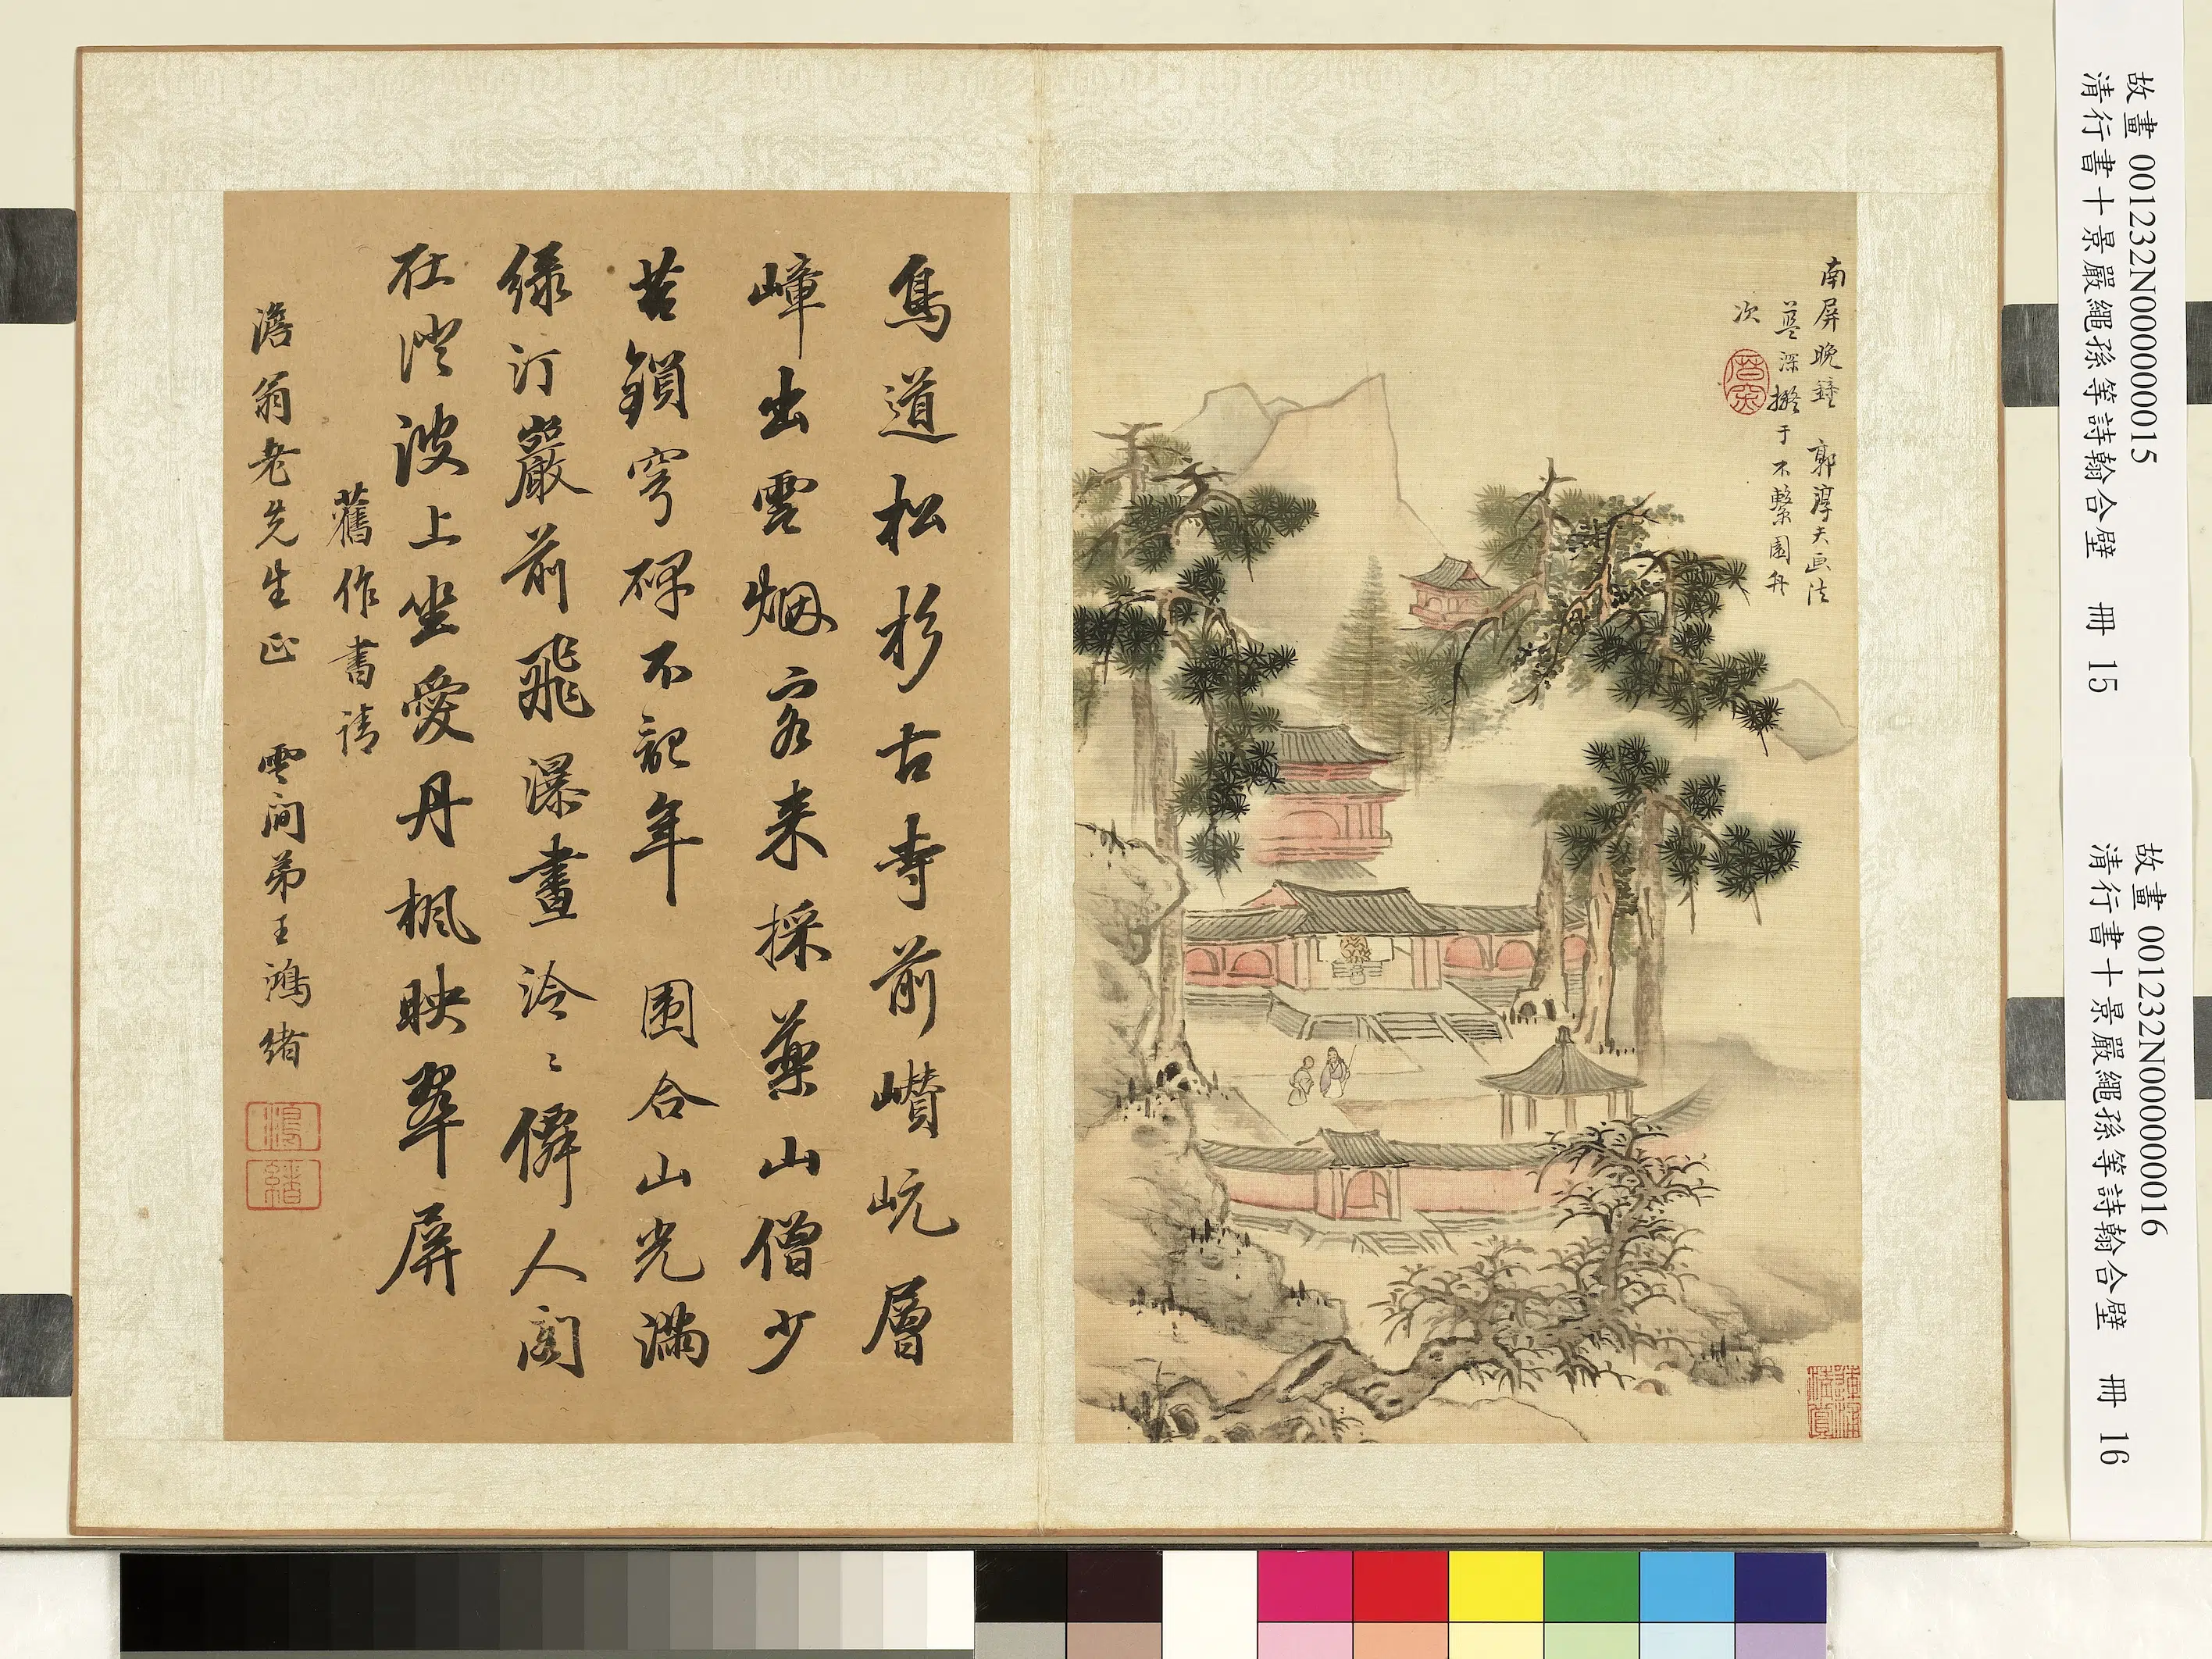 南屏晚鐘 郭淳夫画法
藍深撫于不繫園舟
次
鳥道松杉古寺前巑岏層
嶂出雲烟客来採藥山僧少
苔鎖穹碑不記年 圍合山光滿
綠汀巖前飛瀑畫泠〻僻人閣
在澄波上坐愛丹楓映翠屏
舊作書請
澹翁老先生正 雲间弟王鴻緒
鴻
緒
故畫 001232N000000015
清行書十景嚴繩孫等詩翰合璧 冊 15
故畫 001232N000000016
清行書十景嚴繩孫等詩翰合璧 冊 16